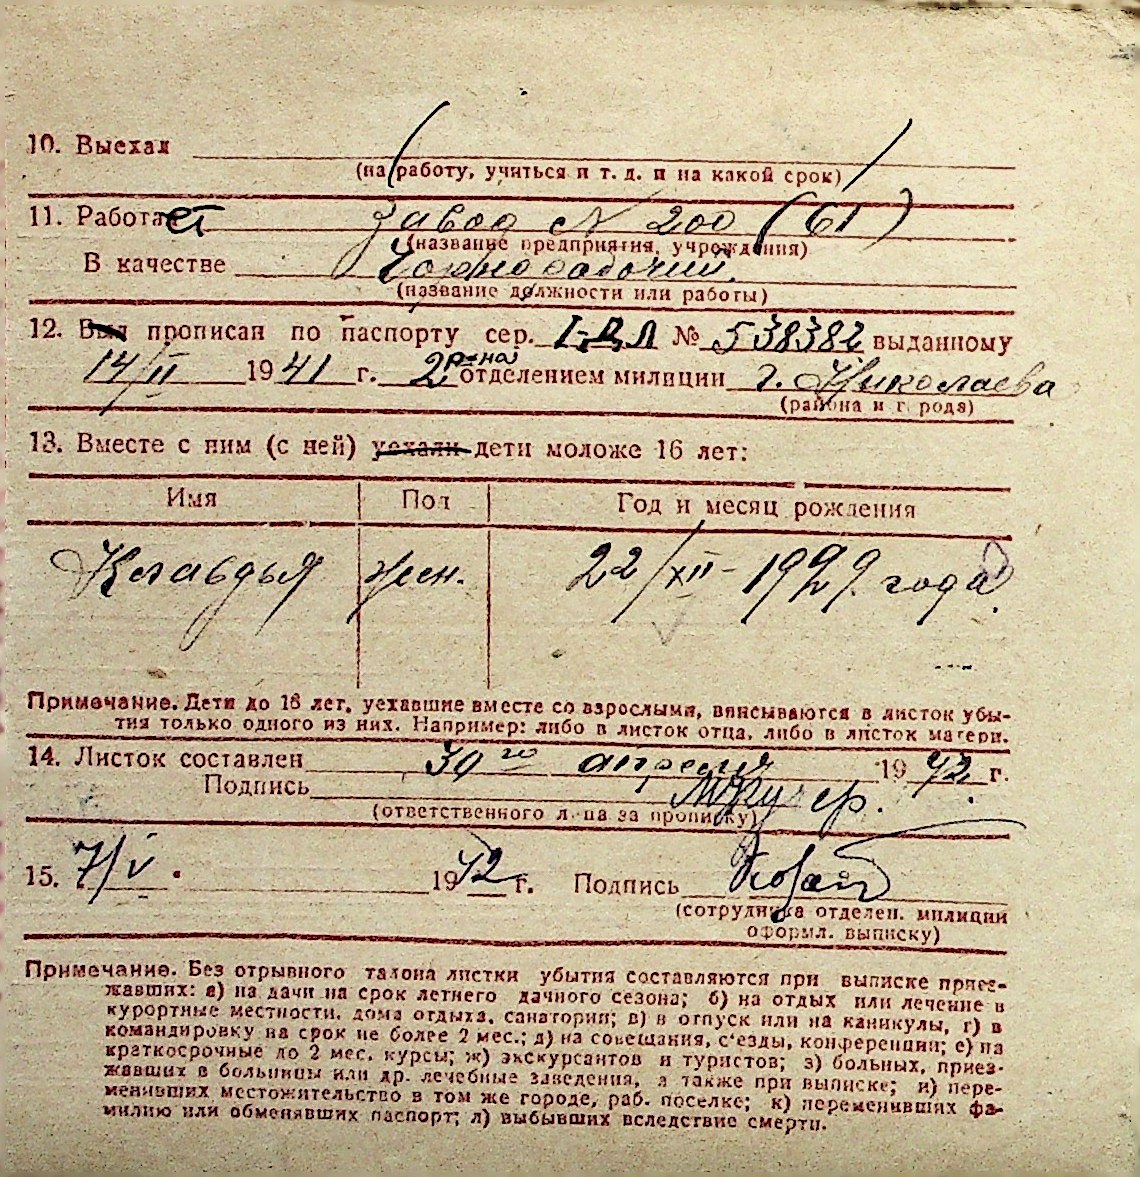 10. Выехал
(на работу, учиться и т. д. и на какой срок)
11. Работает завод № 200 (61)
(название предприятия, учреждения)
В качестве
(название должности или работы)
12. Был прописан по паспорту сер. I-ДЛ № 538382 выданному
14/II 1941 г. 2 р-на отделением милиции г. Николаева
(района и города)
13. Вместе с ним (с ней) уехали дети моложе 16 лет:
Имя Пол Год и месяц рождения
Клавдья жен. 22/XII-1929 года
Примечание. Дети до 16 лет, уехавшие вместе со взрослыми, вписываются в листок убы-
тия только одного из них. Например: либо в листок отца, либо в листок матери.
14. Листок составлен 30 го апреля 1942 г.
Подпись
(ответственного лица за прописку)
15. 7/V 1942 г. Подпись
(сотрудника отделен. милиции
оформл. выписку)
Примечание. Без отрывного талона листки убытия составляются при выписке приез-
жавших: а) на дачи на срок летнего дачного сезона; б) на отдых или лечение в
курортные местности, дома отдыха, санатории; в) в отпуск или на каникулы, г) в
командировку на срок не более 2 мес.; д) на совещания, с'езды, конференции; е) на
краткосрочные до 2 мес. курсы; ж) экскурсантов и туристов; з) больных, приез-
жавших в больницы или др. лечебные заведения, а также при выписке; и) пере-
менивших местожительство в том же городе, раб. поселке; к) переменивших фа-
милию или обменявших паспорт; л) выбывших вследствие смерти.